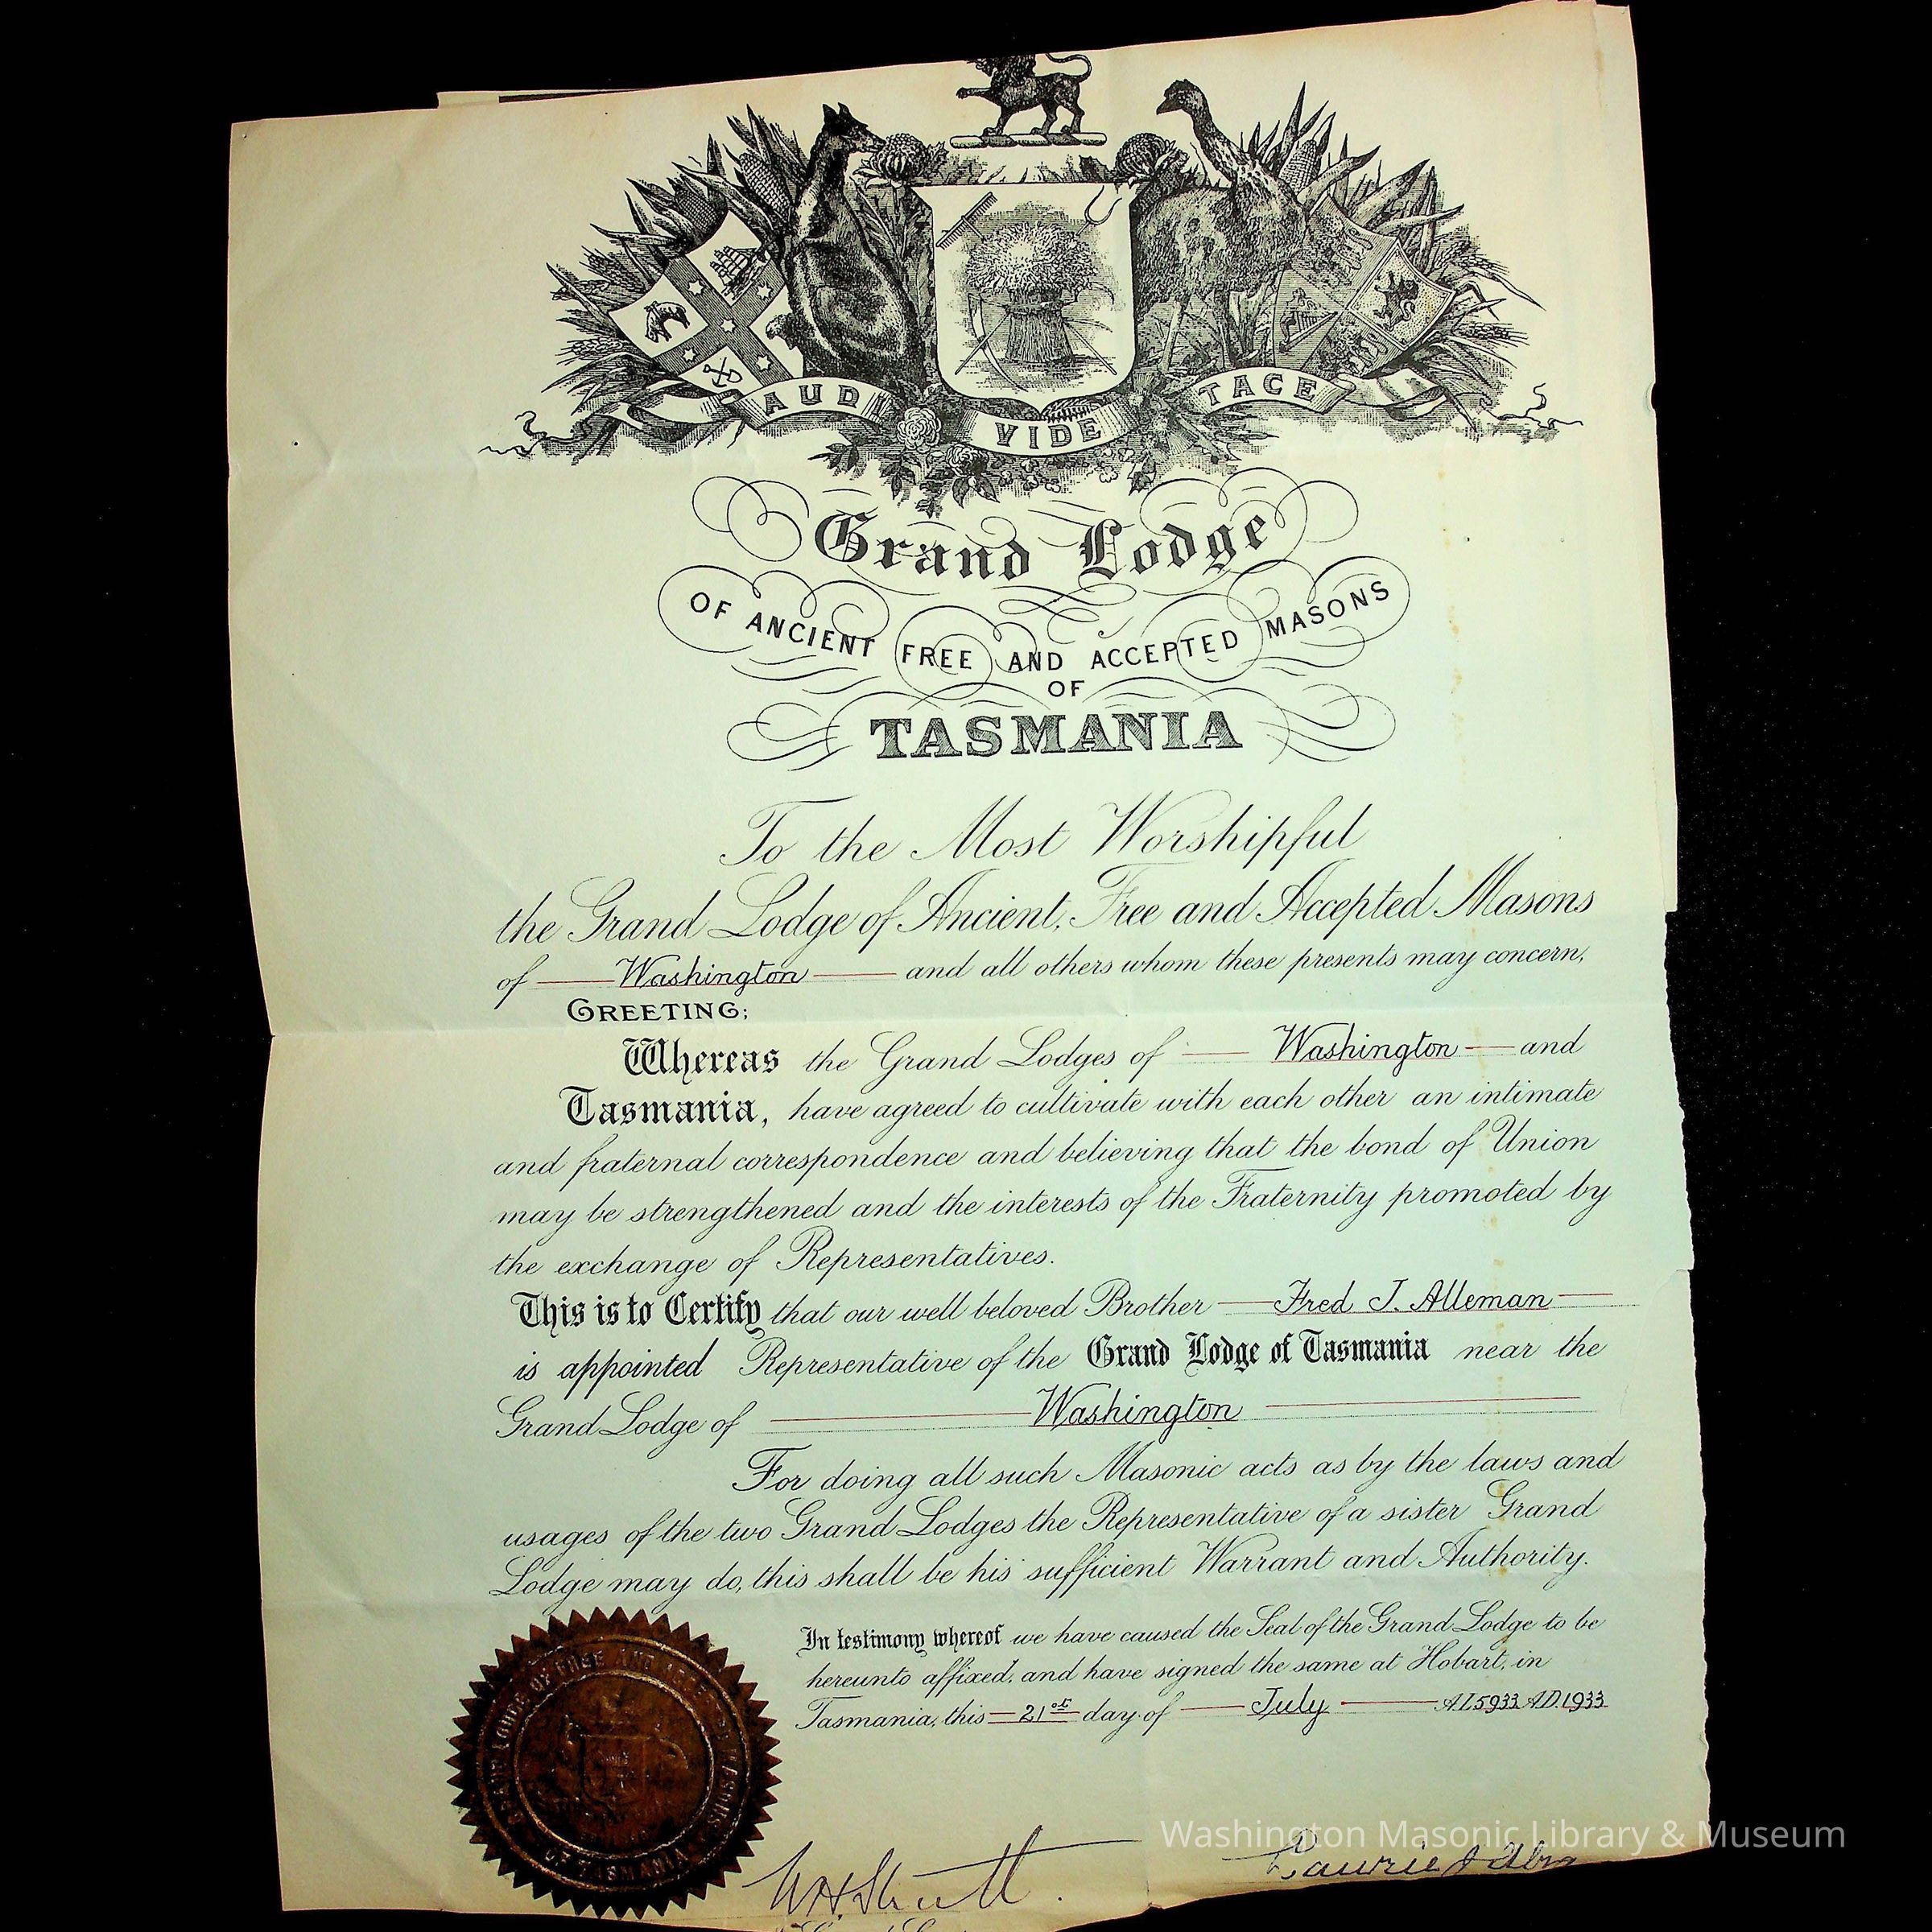 AUDI VIDE TACE
Grand Lodge
OF ANCIENT FREE AND ACCEPTED MASONS
OF
TASMANIA
To the Most Worshipful
the Grand Lodge of Ancient, Free and Accepted Masons
of Washington and all others whom these presents may concern,
GREETING;
Whereas the Grand Lodges of Washington and
Tasmania, have agreed to cultivate with each other an intimate
and fraternal correspondence and believing that the bond of Union
may be strengthened and the interests of the Fraternity promoted by
the exchange of Representatives.
This is to Certify that our well beloved Brother Fred J. Alleman
is appointed Representative of the Grand Lodge of Tasmania near the
Grand Lodge of Washington
For doing all such Masonic acts as by the laws and
usages of the two Grand Lodges the Representative of a sister Grand
Lodge may do, this shall be his sufficient Warrant and Authority.
In testimony whereof we have caused the Seal of the Grand Lodge to be
hereunto affixed, and have signed the same at Hobart, in
Tasmania, this 21st day of July A.L.5933 A.D.1933
GRAND LODGE OF FREE AND MASONS
OF TASMANIA
Washington Masonic Library & Museum
Laurie